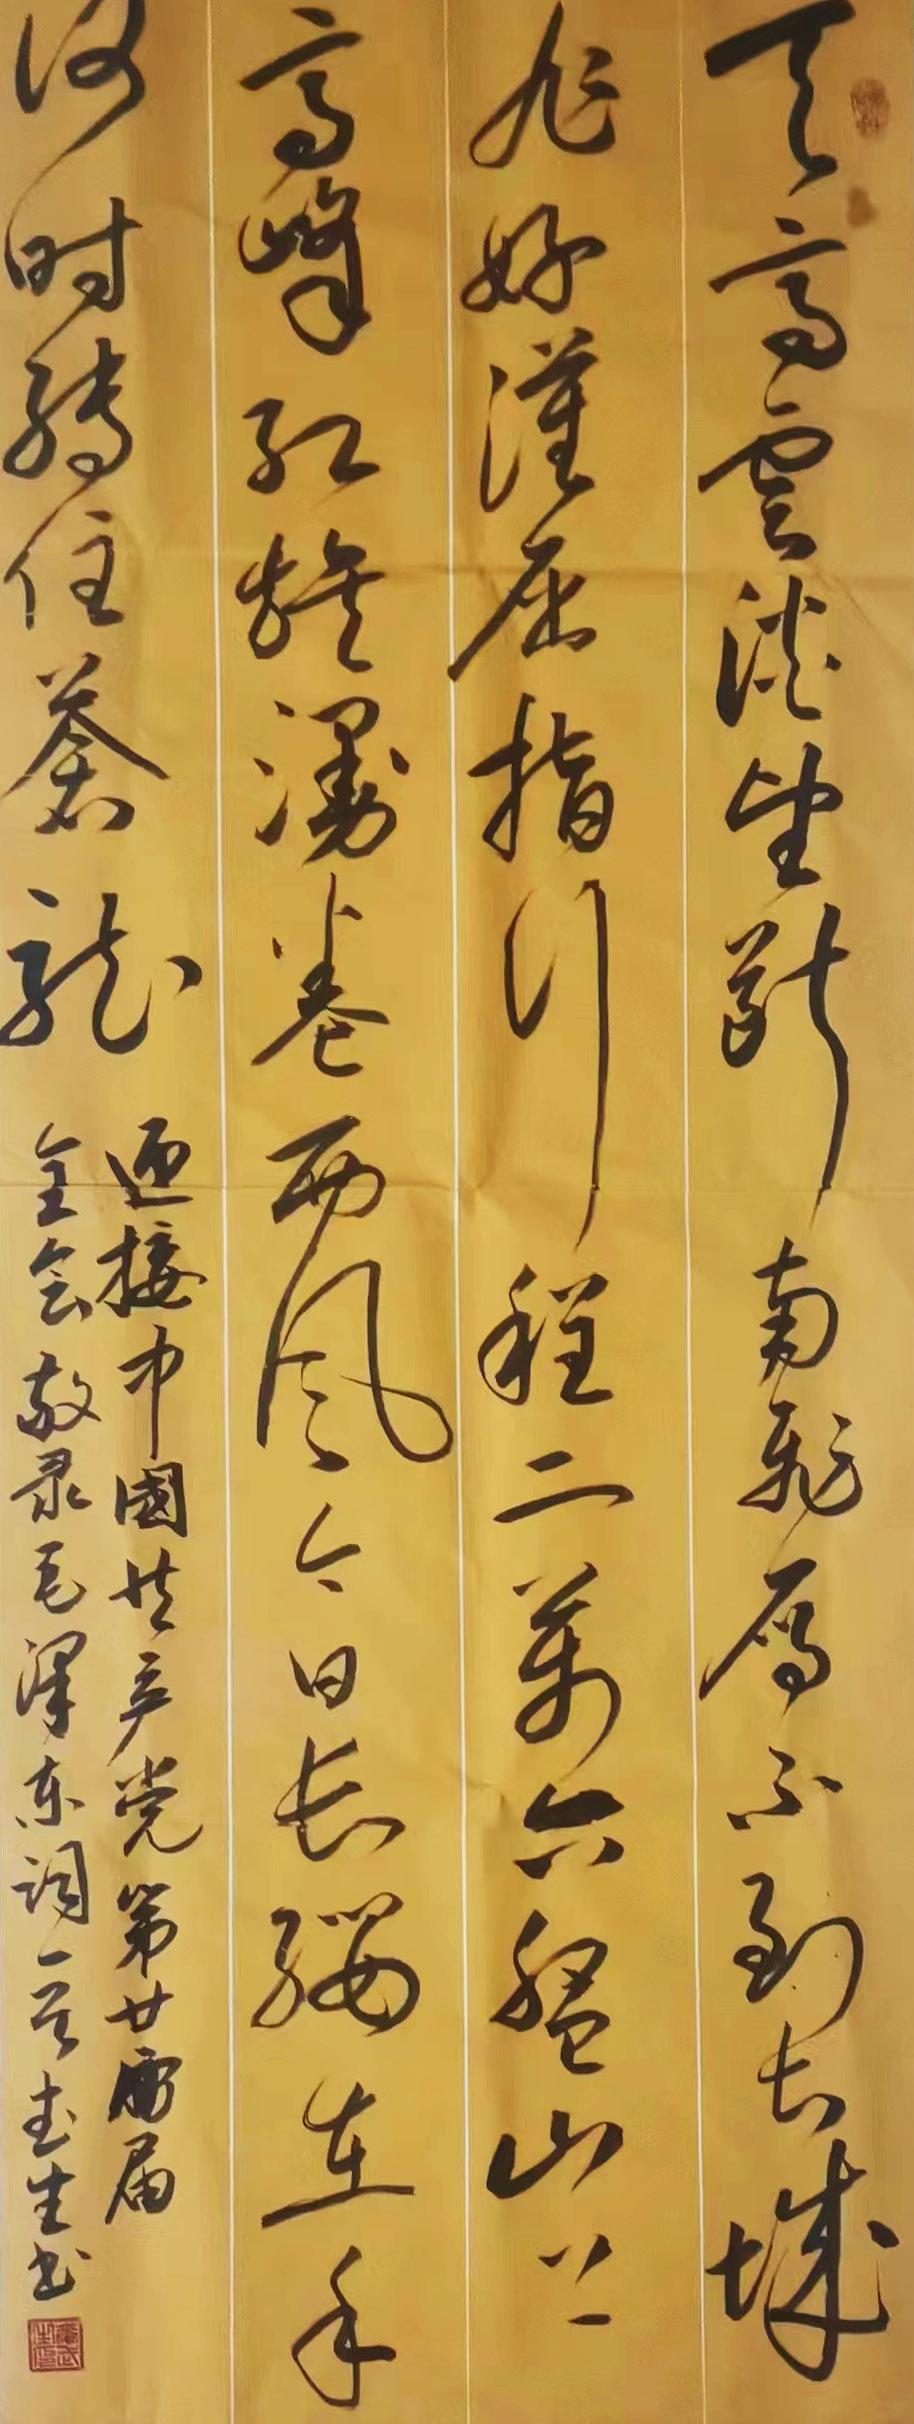 天高雲淡望断南飛雁不到长城
非好漢屈指行程二萬六盤山上
高峰红旗漫卷西风今日长缨在手
何时缚住蒼龍
迎接中國共产党第廿届
全会敬录毛泽东词一首武生书